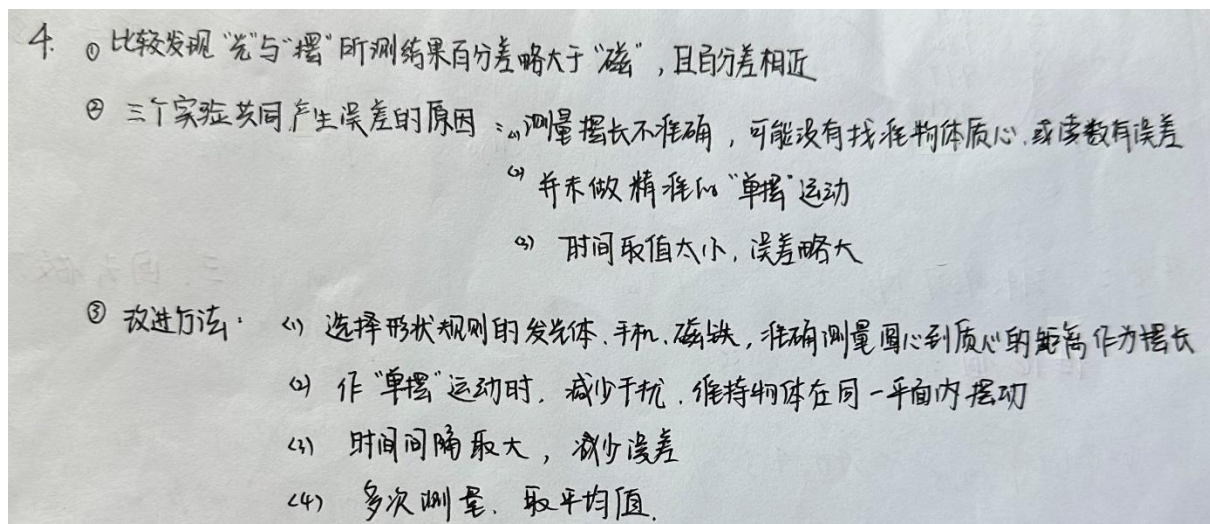 4. ① 比较发现“光”与“摆”所测结果百分差略大于“磁”,且百分差相近
② 三个实验共同产生误差的原因:(1)测量摆长不准确,可能没有找准物体质心.或读数有误差
(2) 并未做精准的“单摆”运动
(3) 时间取值太小,误差略大
③ 改进方法: (1) 选择形状规则的发光体.手机.磁铁,准确测量圆心到质心的距离作为摆长
(2) 作“单摆”运动时,减少干扰.维持物体在同一平面内摆动
(3) 时间间隔取大,减少误差
(4) 多次测量.取平均值.